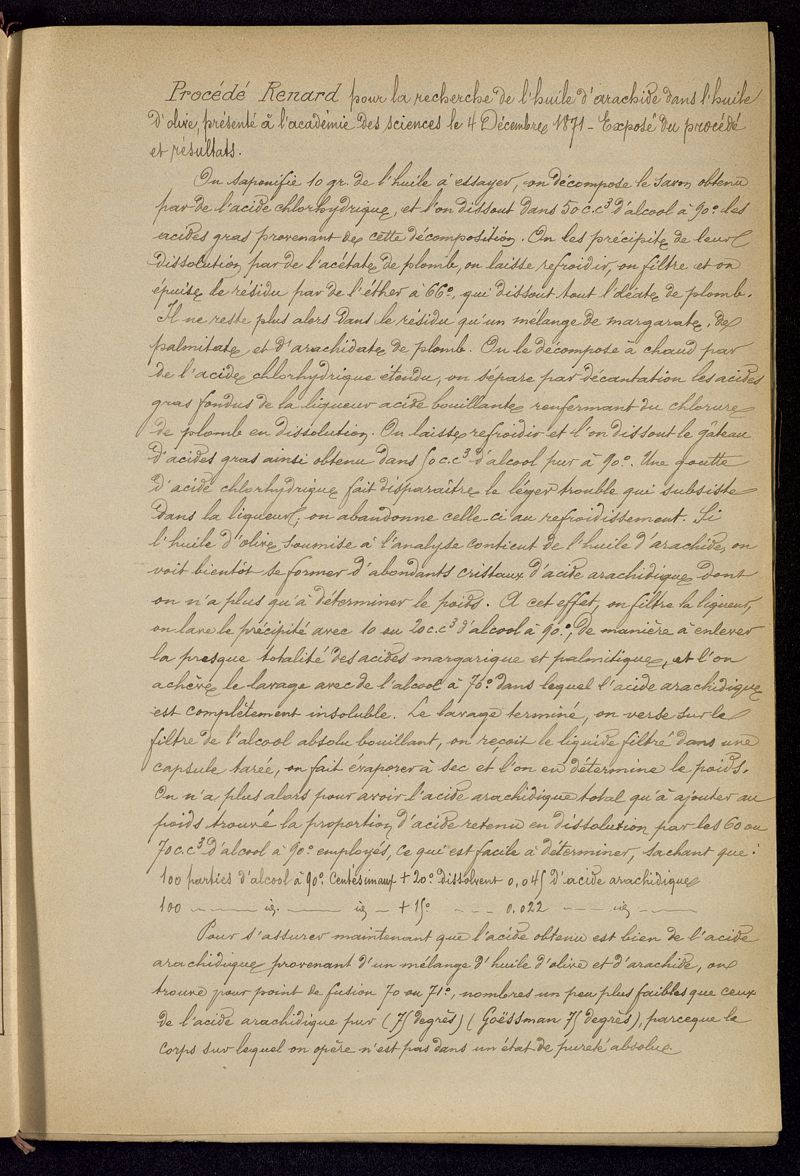 Procédé Renard pour la recherche de l'huile d'arachide dans l'huile
d'olive, présenté à l'académie des sciences le 4 Décembre 1871 - Exposé du procédé
et résultats.
On saponifie 10 gr. de l'huile à essayer, on décompose le savon obtenu
par de l'acide chlorhydrique, et l'on dissout dans 50 c.c³ d'alcool à 90° les
acides gras provenant de cette décomposition. On les précipite de leur
dissolution par de l'acétate de plomb, on laisse refroidir, on filtre et on
épuise le résidu par de l'éther à 66°, qui dissout tout l'oléate de plomb.
Il ne reste plus alors dans le résidu qu'un mélange de margarate, de
palmitate, et d'arachidate de plomb. On le décompose à chaud par
de l'acide chlorhydrique étendu, on sépare par décantation les acides
gras fondus de la liqueur acide bouillante renfermant du chlorure
de plomb en dissolution. On laisse refroidir et l'on dissout le gâteau
d'acides gras ainsi obtenu dans 50 c.c³ d'alcool pur à 90°. Une goutte
d'acide chlorhydrique fait disparaître le léger trouble qui subsiste
dans la liqueur; on abandonne celle-ci au refroidissement. Si
l'huile d'olive soumise à l'analyse contient de l'huile d'arachide, on
voit bientôt se former d'abondants cristaux d'acide arachidique dont
on n'a plus qu'à déterminer le poids. A cet effet, on filtre la liqueur,
on lave le précipité avec 10 ou 20 c.c³ d'alcool à 90°, de manière à enlever
la presque totalité des acides margarique et palmitique, et l'on
achève le lavage avec de l'alcool à 70° dans lequel l'acide arachidique
est complètement insoluble. Le lavage terminé, on verse sur le
filtre de l'alcool absolu bouillant, on reçoit le liquide filtré dans une
capsule tarée, on fait évaporer à sec et l'on en détermine le poids.
On n'a plus alors pour avoir l'acide arachidique total qu'à ajouter au
poids trouvé la proportion d'acide retenu en dissolution par les 60 ou
70 c.c³ d'alcool à 90° employés, ce qui est facile à déterminer, sachant que:
100 parties d'alcool à 90° centésimaux + 20° dissolvent 0,045 d'acide arachidique
100 ——— id. ——— id — + 15° - - - 0.022 ——— id ———
Pour s'assurer maintenant que l'acide obtenu est bien de l'acide
arachidique provenant d'un mélange d'huile d'olive et d'arachide, on
trouve pour point de fusion 70 ou 71°, nombres un peu plus faibles que ceux
de l'acide arachidique pur (75 degrés) (Goëssman 75 degrés), parceque le
corps sur lequel on opère n'est pas dans un état de pureté absolue